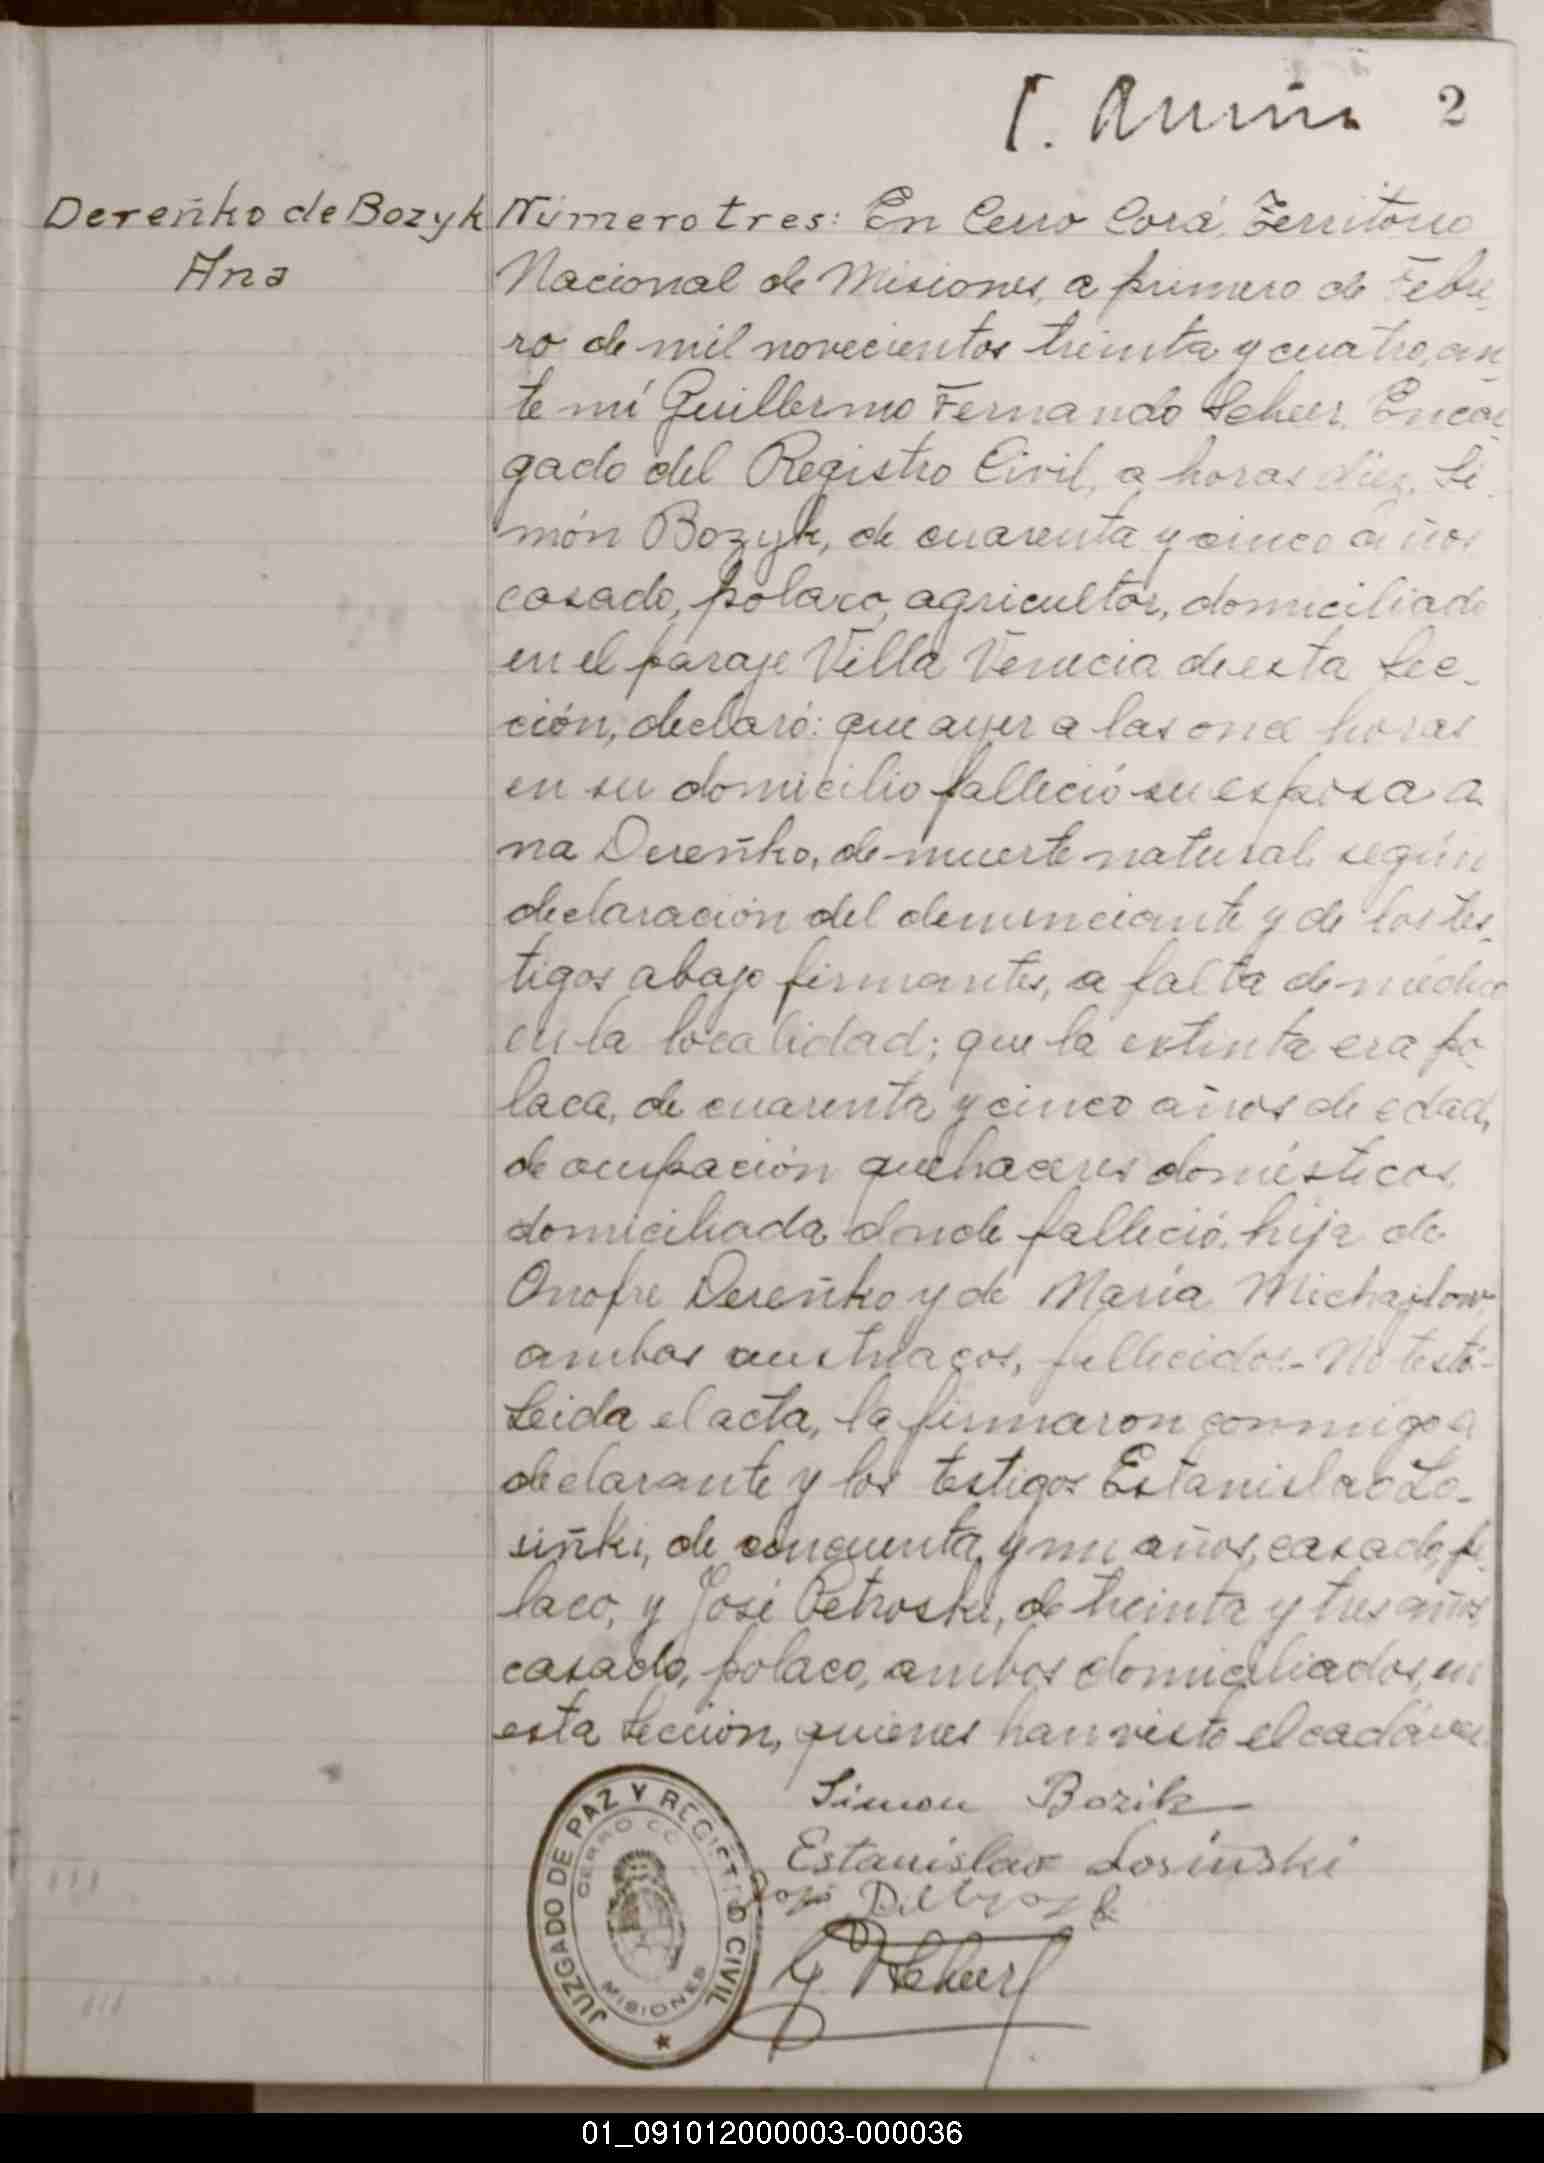 2
Dereñko de Bozyk
Ana
Número tres: En Cerro Corá, Territorio
Nacional de Misiones, a primero de Febre-
ro de mil novecientos treinta y cuatro, an-
te mí Guillermo Fernando Scheer, Encar-
gado del Registro Civil, a horas diez, Si-
món Bozyk, de cuarenta y cinco años
casado, polaco, agricultor, domiciliado
en el paraje Villa Venecia de esta Sec-
ción, declaró: que ayer a las once horas
en su domicilio falleció su esposa A
na Dereñko, de muerte natural según
declaración del denunciante y de los tes-
tigos abajo firmantes, a falta de médico
en la localidad; que la extinta era po-
laca, de cuarenta y cinco años de edad,
de ocupación quehaceres domésticos,
domiciliada donde falleció, hija de
Onofre Dereñko y de María Michajlow
ambos austriacos, fallecidos- No testó-
Leida el acta, la firmaron conmigo el
declarante y los testigos Estanislao Lo-
siñki, de cincuenta y un años, casado, po-
laco, y José Petroski, de treinta y tres años,
casado, polaco, ambos domiciliados en
esta Sección, quienes han visto el cadáver.
Simon Bozik
Estanislao Losiński
G F Scheer
JUZGADO DE PAZ Y REGISTRO CIVIL
CERRO CO
MISIONES
01_091012000003-000036